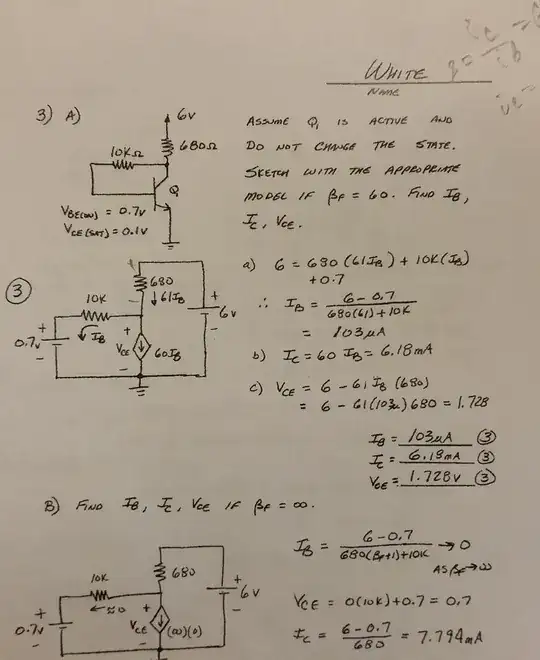 WHITE
NAME
3) A)
6V
680Ω
10KΩ
Q1
VBE(ON) = 0.7V
VCE(SAT) = 0.1V
ASSUME Q1 IS ACTIVE AND
DO NOT CHANGE THE STATE.
SKETCH WITH THE APPROPRIATE
MODEL IF βF = 60. FIND IB,
IC, VCE.
3
680
↓ 61IB
10K
IB
0.7V
+
-
+
VCE
-
60IB
+
6V
-
a) 6 = 680(61IB) + 10K(IB)
+0.7
∴ IB = 6-0.7 / 680(61)+10K
= 103μA
b) IC = 60 IB = 6.18mA
c) VCE = 6 - 61 IB (680)
= 6 - 61(103μ)680 = 1.728
IB = 103μA 3
IC = 6.18mA 3
VCE = 1.728V 3
B) FIND IB, IC, VCE IF βF = ∞.
10K
←≈0
680
0.7V
+
+
VCE
-
(∞)(0)
+
6V
-
IB = 6-0.7 / 680(βF+1)+10K → 0
AS βF → ∞
VCE = 0(10K)+0.7 = 0.7
IC = 6-0.7 / 680 = 7.794mA